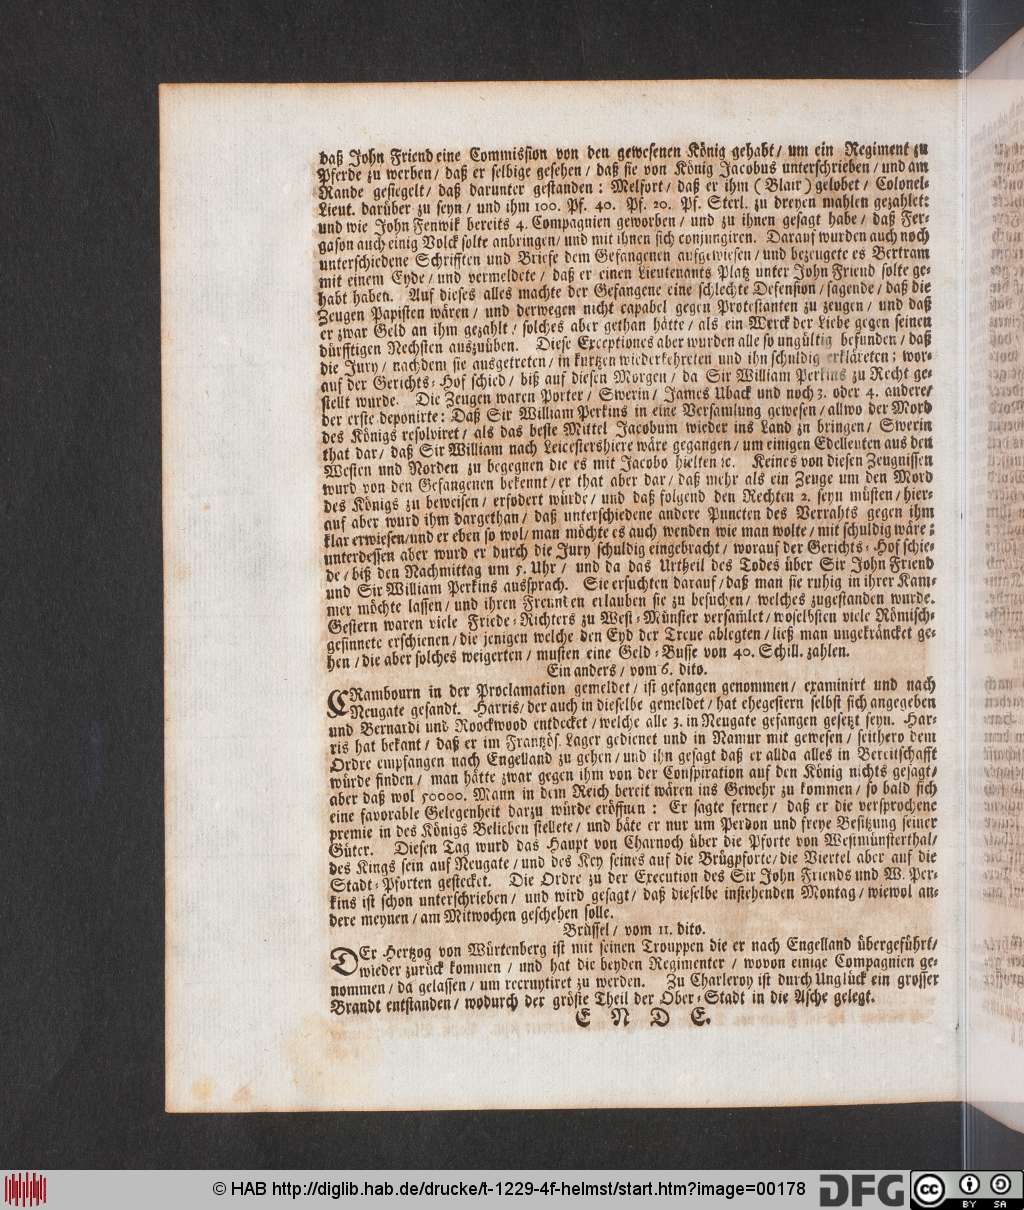 daß John Friend eine Commission von den gewesenen König gehabt / um ein Regiment zu
Pferde zu werben / daß er selbige gesehen / daß sie von König Jacobus unterschrieben / und am
Rande gesiegelt / daß darunter gestanden : Melfort / daß er ihm ( Blair ) gelobet / Colonel-
Lieut. darüber zu seyn / und ihm 100. Pf. 40. Pf. 20. Pf. Sterl. zu dreyen mahlen gezahlet:
und wie John Fenwik bereits 4. Compagnien geworben / und zu ihnen gesagt habe / daß Fer-
gason auch einig Volck solte anbringen / und mit ihnen sich conjungiren. Darauf wurden auch noch
unterschiedene Schrifften und Briefe dem Gefangenen aufgewiesen / und bezeugete es Bertram
mit einem Eyde / und vermeldete / daß er einen Lieutenants Platz unter John Friend solte ge-
habt haben. Auf dieses alles machte der Gefangene eine schlechte Defension / sagende / daß die
Zeugen Papisten wären / und derwegen nicht capabel gegen Protestanten zu zeugen / und daß
er zwar Geld an ihm gezahlt / solches aber gethan hätte / als ein Werck der Liebe gegen seinen
dürfftigen Nechsten auszuüben. Diese Exceptiones aber wurden alle so ungültig befunden / daß
die Jury / nachdem sie ausgetreten / in kurtzen wiederkehreten und ihn schuldig erkläreten ; wor-
auf der Gerichts-Hof schied / biß auf diesen Morgen / da Sir William Perkins zu Recht ge-
stellt wurde. Die Zeugen waren Porter / Swerin / James Uback und noch 3. oder 4. andere/
der erste deponirte: Daß Sir William Perkins in eine Versamlung gewesen / allwo der Mord
des Königs resolviret / als das beste Mittel Jacobum wieder ins Land zu bringen / Swerin
that dar / daß Sir William nach Leicestershiere wäre gegangen / um einigen Edelleuten aus den
Westen und Norden zu begegnen die es mit Jacobo hielten ꝛc. Keines von diesen Zeugnissen
wurd von den Gefangenen bekennt / er that aber dar / daß mehr als ein Zeuge um den Mord
des Königs zu beweisen / erfodert würde / und daß folgend den Rechten 2. seyn müsten / hier-
auf aber wurd ihm dargethan / daß unterschiedene andere Puncten des Verrahts gegen ihm
klar erwiesen / und er eben so wol / man möchte es auch wenden wie man wolte / mit schuldig wäre :
unterdessen aber wurd er durch die Jury schuldig eingebracht / worauf der Gerichts-Hof schie-
de / biß den Nachmittag um 5. Uhr / und da das Urtheil des Todes über Sir John Friend
und Sir William Perkins aussprach. Sie ersuchten darauf / daß man sie ruhig in ihrer Kam-
mer möchte lassen / und ihren Freunden erlauben sie zu besuchen / welches zugestanden wurde.
Gestern waren viele Friede-Richters zu West-Münster versamlet / woselbsten viele Römisch-
gesinnete erschienen / die jenigen welche den Eyd der Treue ablegten / ließ man ungekräncket ge-
hen / die aber solches weigerten / musten eine Geld-Busse von 40. Schill. zahlen.
Ein anders / vom 6. dito.
CRambourn in der Proclamation gemeldet / ist gefangen genommen / examinirt und nach
Neugate gesandt. Harris / der auch in dieselbe gemeldet / hat ehegestern selbst sich angegeben
und Bernardi und Roockwood entdecket / welche alle 3. in Neugate gefangen gesetzt seyn. Har-
ris hat bekant / daß er im Frantzös. Lager gedienet und in Namur mit gewesen / seithero dem
Ordre empfangen nach Engelland zu gehen / und ihn gesagt daß er allda alles in Bereitschafft
würde finden / man hätte zwar gegen ihm von der Conspiration auf den König nichts gesagt/
aber daß wol 50000. Mann in dem Reich bereit wären ins Gewehr zu kommen / so bald sich
eine favorable Gelegenheit darzu würde eröffnen : Er sagte ferner / daß er die versprochene
premie in des Königs Belieben stellete / und bäte er nur um Perdon und freye Besitzung seiner
Güter. Diesen Tag wurd das Haupt von Charnoch über die Pforte von Westmünsterthal/
des Kings sein auf Neugate / und des Key seines auf die Brügpforte / die Viertel aber auf die
Stadt-Pforten gestecket. Die Ordre zu der Execution des Sir John Friends und W. Per-
kins ist schon unterschrieben / und wird gesagt / daß dieselbe instehenden Montag / wiewol an-
dere meynen / am Mitwochen geschehen solle.
Brüssel / vom 11. dito.
DEr Hertzog von Würtenberg ist mit seinen Trouppen die er nach Engelland übergeführt/
wieder zurück kommen / und hat die beyden Regimenter / wovon einige Compagnien ge-
nommen / da gelassen / um recruytiret zu werden. Zu Charleroy ist durch Unglück ein grosser
Brandt entstanden / wodurch der gröste Theil der Ober-Stadt in die Asche gelegt.
E N D E.
© HAB http://diglib.hab.de/drucke/t-1229-4f-helmst/start.htm?image=00178
DFG
cc BY SA